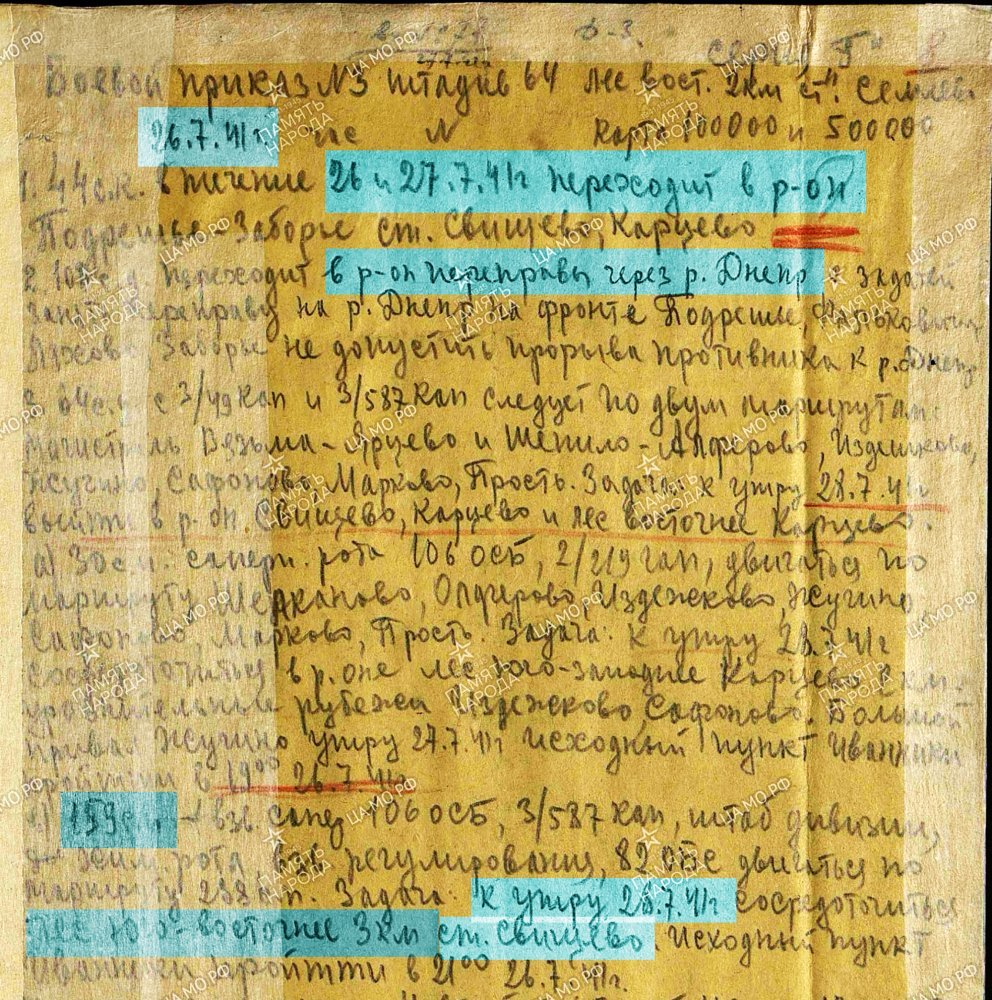 Боевой приказ N3 штадив 64 лес вост. 2км ст. Семлево
26.7.41г. N карта 100000 и 500000
1. 44 с.к. в течение 26 и 27.7.41г переходит в р-он
Подрешье Заборье ст. Свищево, Карцево
2 108 с.д. переходит в р-он переправы через р. Днепр с задачей
занять переправу на р. Днепр на фронте Подрешье,
Заборье не допустить прорыва противника к р. Днепр
3. 64с.д. с 3/49 Кап и 3/587 Кап следует по двум маршрутам:
Магистраль Вязьма-Ярцево и Шепило-Алферово, Издешково,
Жучино, Сафоново, Марково, Прость. Задача: к утру 28.7.41г
выйти в р-он. Свищево, Карцево и лес восточнее Карцево.
а) 30с.п. саперн. рота 106 ОСБ, 2/219 гап, двигаться по
маршруту Мерканово, Олферово, Издежсково, Жучино
Сафоново, Марково, Прость. Задача: К утру 28.7.41г
сосредоточиться в р.оне лес юго-западнее Карцево 2км.
уравнительные рубежи Издежсково, Сафоново. Большой
привал Жучино утру 27.7.41г исходный пункт Иванники
пройти в 19⁰⁰ 26.7.41г
159с.п. взв. сапер 106 ОСБ, 3/587 Кап, штаб дивизии,
хим. рота взв регулирования, 82 обс двигаться по
маршруту 288 ап. Задача: к утру 28.7.41г сосредоточиться
лес юго-восточнее 3км ст. Свищево. Исходный пункт
Иванники пройти в 21⁰⁰ 26.7.41г.